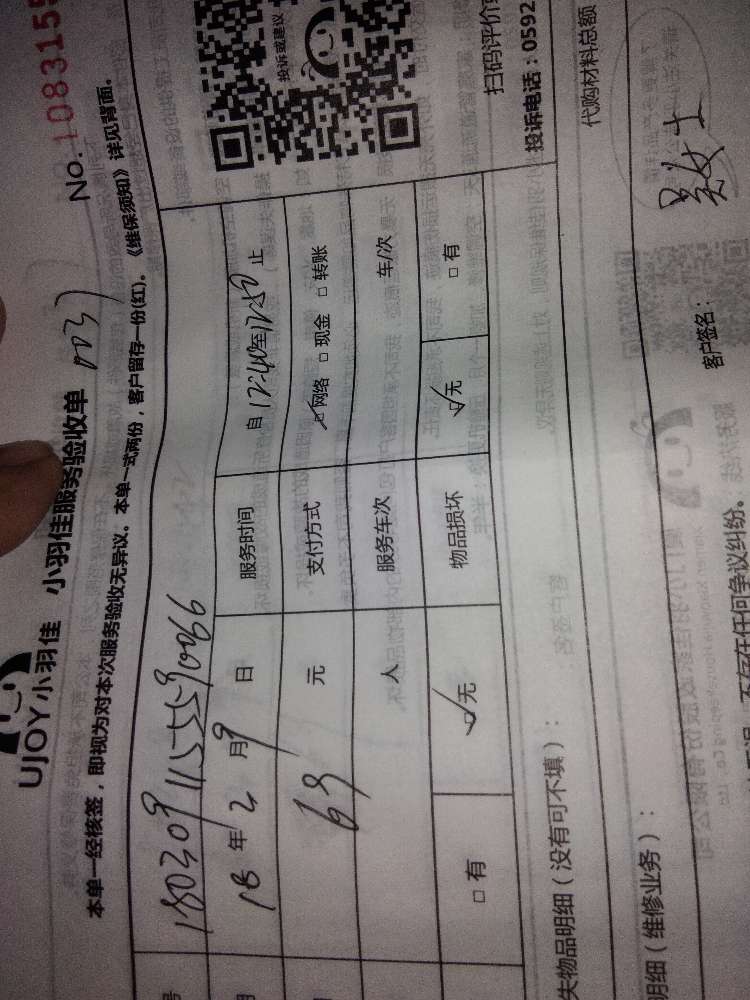 UJOY小羽佳 小羽佳服务验收单 No.1083155
本单一经核签，即视为对本次服务验收无异议。本单一式两份，客户留存一份(红)。《维保须知》详见背面。
号
18年2月9日 服务时间 自12:40至12:50止
69元 支付方式 ☑网络 □现金 □转账
人 服务车次 车/次
□有 ☑无 物品损坏 ☑无 □有
投诉或建议
扫码评价
投诉电话：0592
失物品明细（没有可不填）：
代购材料总额
明细（维修业务）：
客户签名： 吴女士
不存在任何争议纠纷。